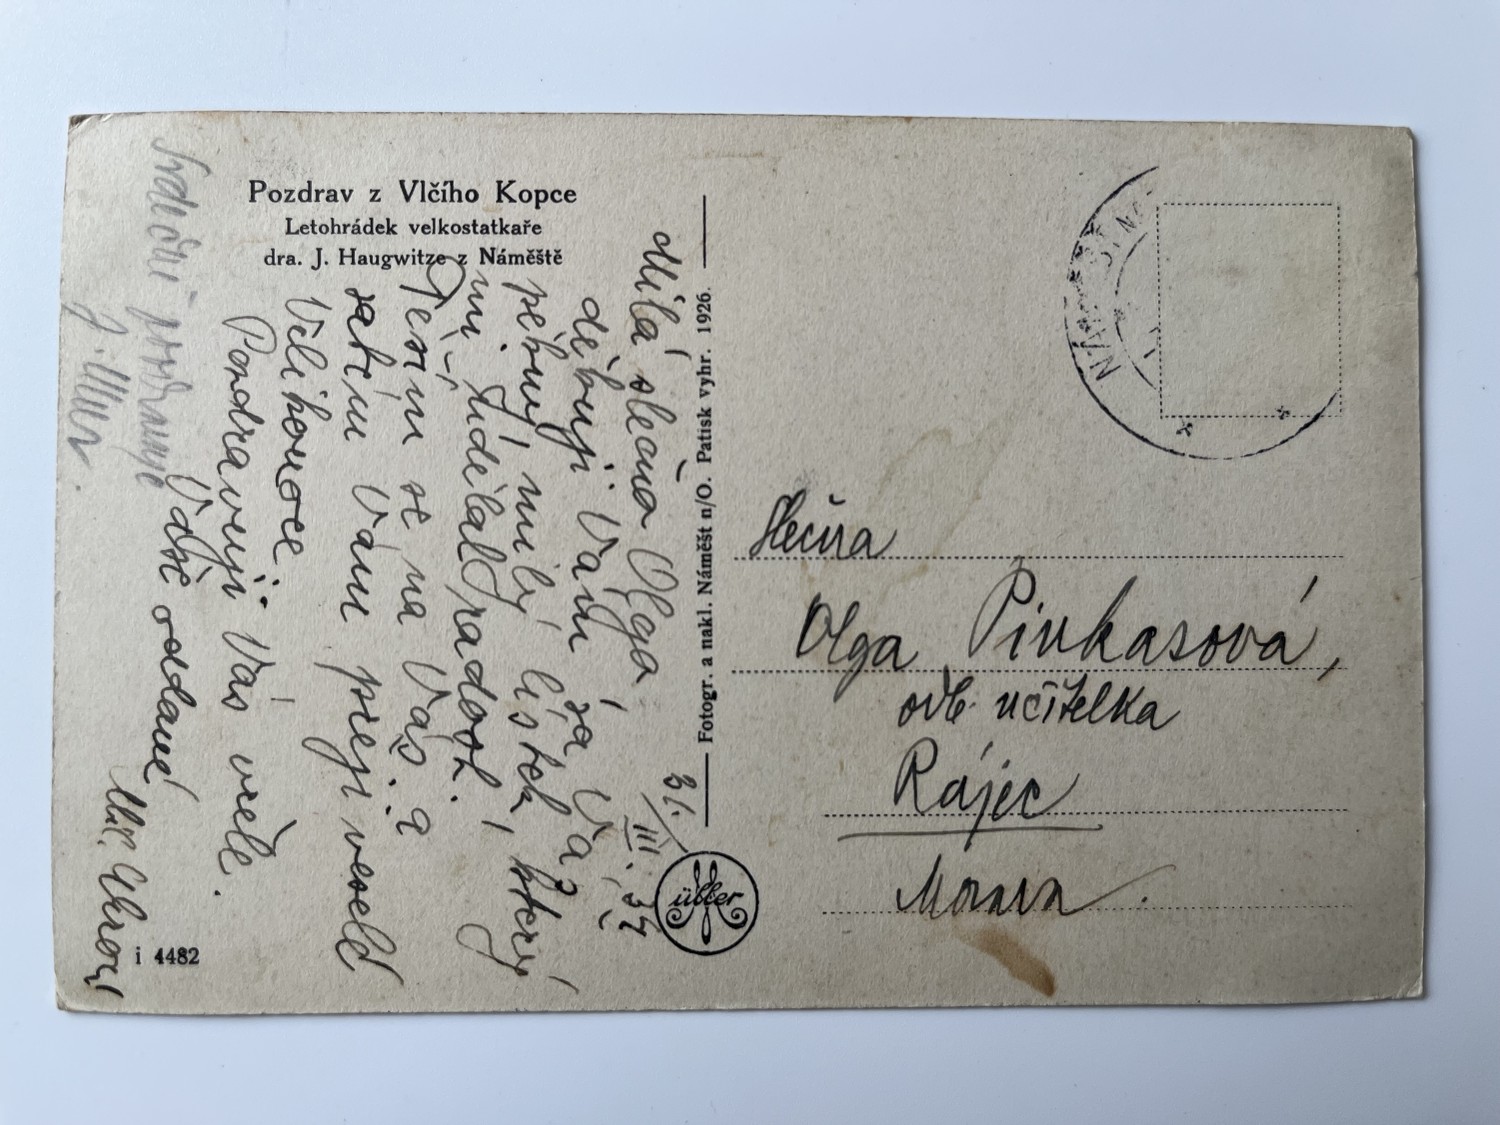 Pozdrav z Vlčího Kopce
Letohrádek velkostatkáře
dra. J. Haugwitze z Náměště
31./III. 34
Milá slečno Olga!
děkuji Vám za Váš
pěkný milý lístek, který
mi udělal radost.
Těším se na Vás a
zatím Vám přeji veselé
Velikonoce.
Pozdravuji Vás vřele.
Vaše oddaná
Srdečně pozdravuje
i 4482
Fotogr. a nakl. Náměšt n/O. Patisk vyhr. 1926.
üller
NÁM
Slečna
Olga Pinkasová,
odb. učitelka
Rájec
Morava.